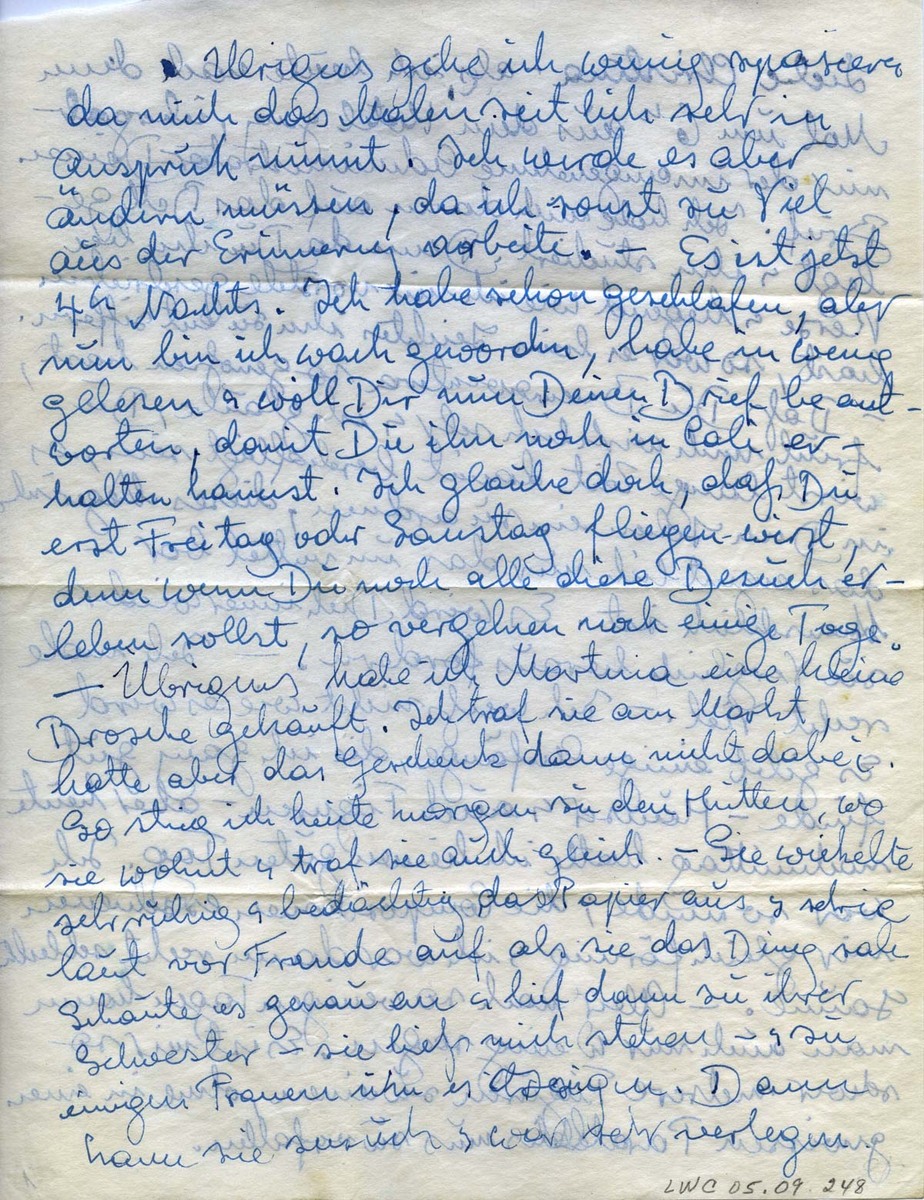 Übrigens gehe ich wenig spazieren
da mich das Malen zeitlich sehr in
Anspruch nimmt. Ich werde es aber
ändern müssen, da ich sonst zu Viel
aus der Erinnerung arbeite. — Es ist jetzt
4h Nachts. Ich habe schon geschlafen, aber
nun bin ich wach geworden, habe ein wenig
gelesen & will Dir nun Deinen Brief beant-
worten, damit Du ihn noch in Cali er-
halten kannst. Ich glaube doch, daß Du
erst Freitag oder Samstag fliegen wirst,
denn wenn Du noch alle diese Besuch er-
leben sollst, so vergehen noch einige Tage.
— Übrigens habe ich Martina eine kleine
Brosche gekauft. Ich traf sie am Markt,
hatte aber das Geschenk dann nicht dabei.
So stieg ich heute morgen zu den Hütten, wo
sie wohnt & traf sie auch gleich. — Sie wickelte
sehr ruhig & bedächtig das Papier aus & schrie
laut vor Freude auf als sie das Ding sah
Schaute es genau an & lief dann zu ihrer
Schwester — sie ließ mich stehen — & zu
einigen Frauen um es zu zeigen. Dann
kam sie zurück & war sehr verlegen.
LWC 05.09.248